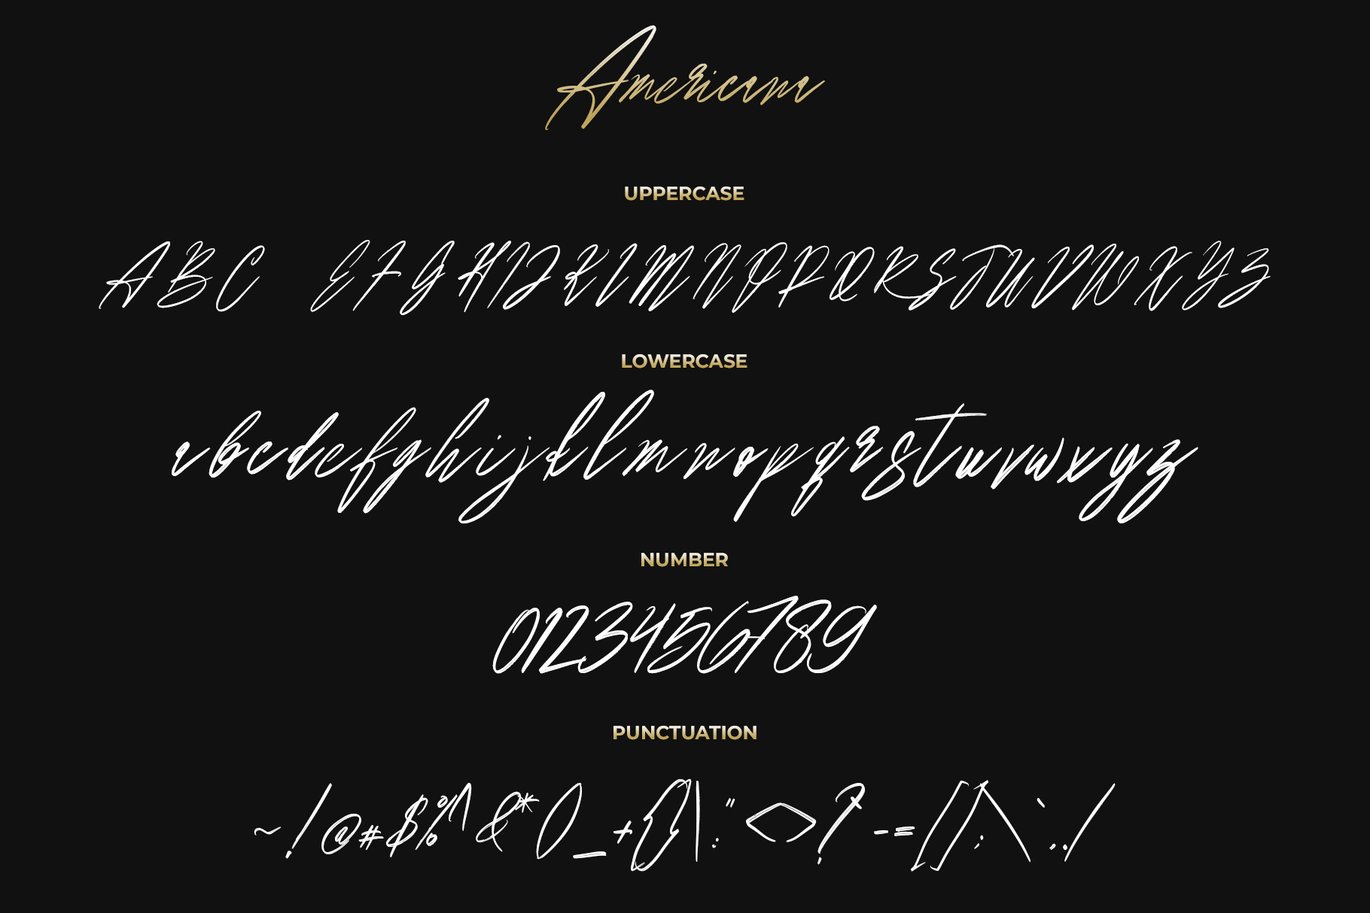 Americana
UPPERCASE
ABC EFGHIJKLMNOPQRSTUVWXYZ
LOWERCASE
abcdefghijklmnopqrstuvwxyz
NUMBER
0123456789
PUNCTUATION
~!@#$%^&*()_+{}|:"<>?-=[]\;'\`,./